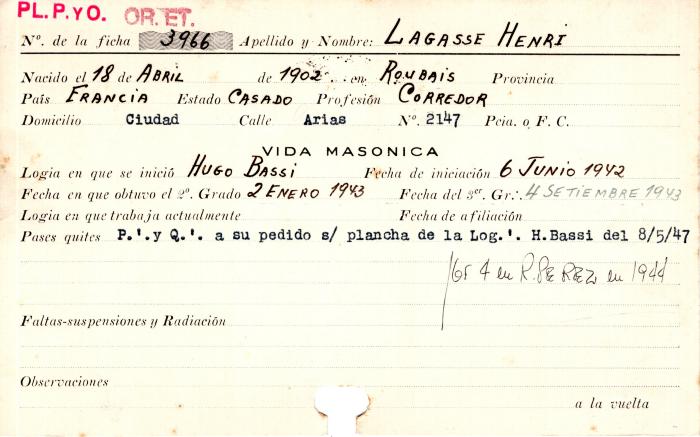 PL. P. y O. OR. ET.
Nº. de la ficha 3966 Apellido y Nombre: LAGASSE HENRI
Nacido el 18 de ABRIL de 1902 en ROUBAIS Provincia
País FRANCIA Estado CASADO Profesión CORREDOR
Domicilio Ciudad Calle Arias Nº. 2147 Pcia. o F. C.
VIDA MASONICA
Logia en que se inició HUGO BASSI Fecha de iniciación 6 JUNIO 1942
Fecha en que obtuvo el 2º. Grado 2 ENERO 1943 Fecha del 3er. Gr∴ 4 SETIEMBRE 1943
Logia en que trabaja actualmente Fecha de afiliación
Pases quites P.'. y Q.'. a su pedido s/ plancha de la Log.'. H.Bassi del 8/5/47
4 en R. PEREZ en 1944
Faltas-suspensiones y Radiación
Observaciones
a la vuelta